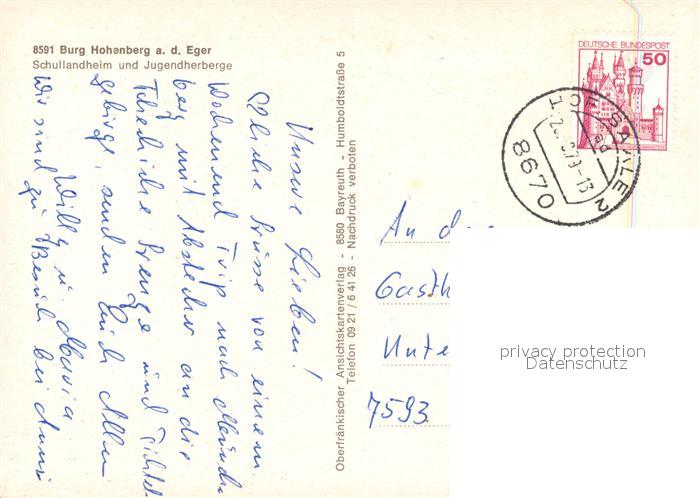 8591 Burg Hohenberg a. d. Eger
Schullandheim und Jugendherberge
Unsere Lieben!
Etliche Grüsse von einem
Wochenend Trip nach
berg mit Abstecher an die
Tschechische Grenze und Fichtel
gebirge, senden Euch Allen
Willy u. Maria
Wir sind zu Besuch bei Anni
Oberfränkischer Ansichtskartenverlag - 8580 Bayreuth - Humboldtstraße 5
Telefon 09 21 / 6 41 26 - Nachdruck verboten
DEUTSCHE BUNDESPOST
50
HOF, SAALE 2
79-13
8670
An d
Gasth
Unte
7593
privacy protection
Datenschutz